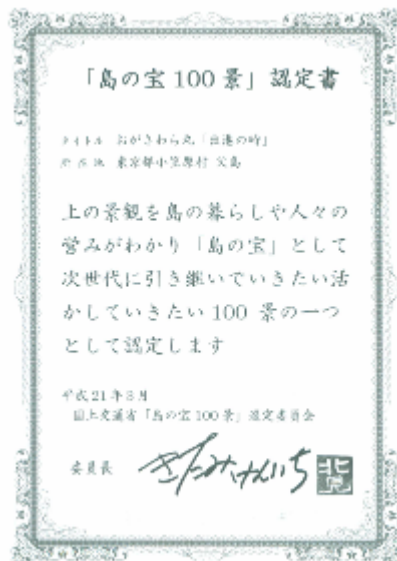 「島の宝100景」認定書
タイトル おがさわら丸「出港の時」
所在地 東京都小笠原村 父島
上の景観を島の暮らしや人々の
営みがわかり「島の宝」として
次世代に引き継いでいきたい活
かしていきたい100景の一つ
として認定します
平成21年3月
国土交通省「島の宝100景」選定委員会
委員長 きたみけんいち
北見